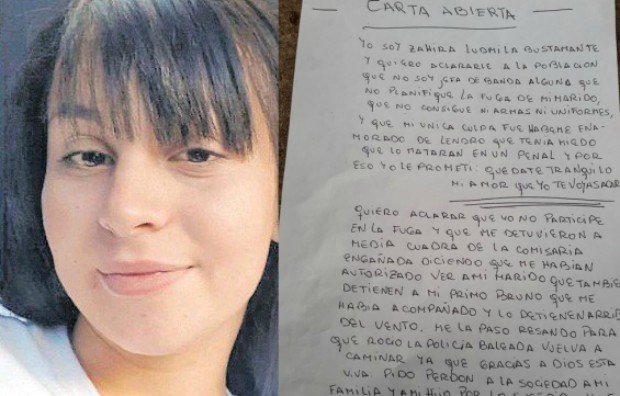 CARTA ABIERTA
YO SOY ZAHIRA LUDMILA BUSTAMANTE
Y QUIERO ACLARARLE A LA POBLACION
QUE NO SOY JEFA DE BANDA ALGUNA QUE
NO PLANIFIQUE LA FUGA DE MI MARIDO,
QUE NO CONSIGUE NI ARMAS NI UNIFORMES,
Y QUE MI UNICA CULPA FUE HABERME ENA-
MORADO DE LENDRO QUE TENIA MIEDO
QUE LO MATARAN EN UN PENAL Y POR
ESO YO LE PROMETI: QUEDATE TRANQUILO
MI AMOR QUE YO TE VOY A SACAR
QUIERO ACLARAR QUE YO NO PARTICIPE
EN LA FUGA Y QUE ME DETUVIERON A
MEDIA CUADRA DE LA COMISARIA
ENGAÑADA DICIENDO QUE ME HABIAN
AUTORIZADO VER A MI MARIDO QUE TAMBIE
DETIENEN A MI PRIMO BRUNO QUE ME
HABIA ACOMPAÑADO Y LO DETIENEN ARRIB
DEL VENTO. ME LA PASO RESANDO PARA
QUE ROCIO LA POLICIA BALEADA VUELVA A
CAMINAR YA QUE GRACIAS A DIOS ESTA
VIVA PIDO PERDON A LA SOCIEDAD A MI
FAMILIA Y A MI HIJO POR LO